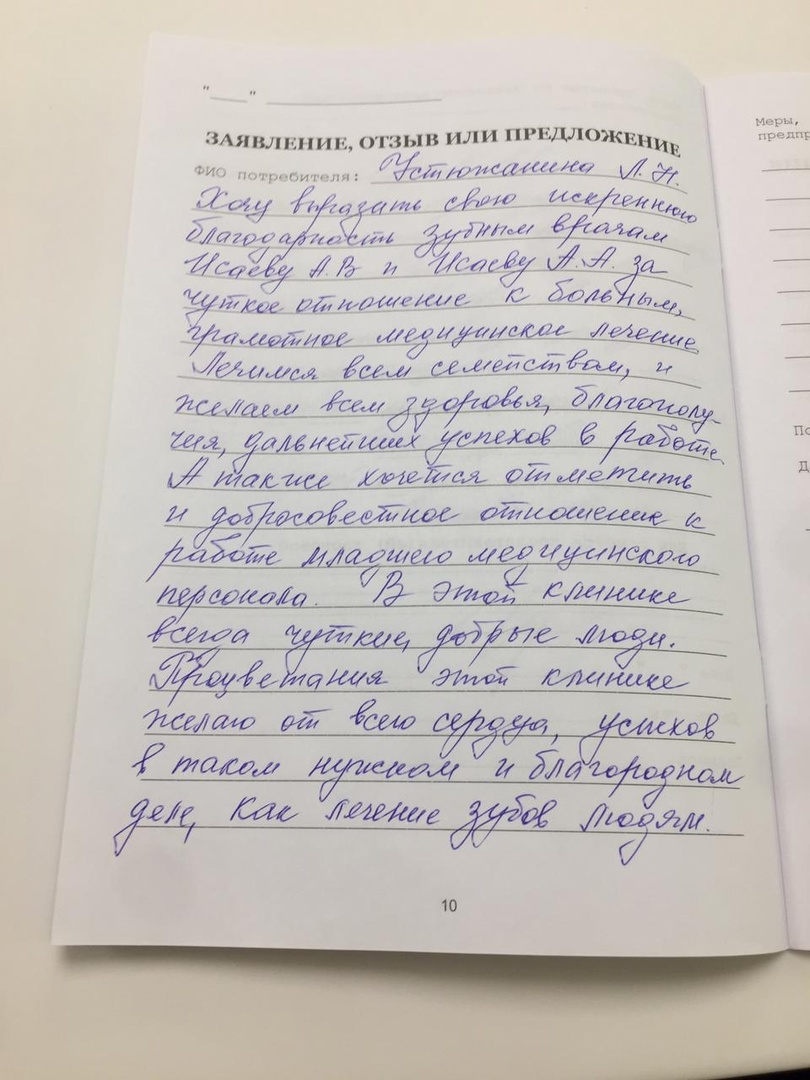 "___" ____________________
ЗАЯВЛЕНИЕ, ОТЗЫВ ИЛИ ПРЕДЛОЖЕНИЕ
ФИО потребителя: Устюжанина Л.Н.
Хочу выразать свою искреннюю
благодарность зубным врачам
Исаеву А.В и Исаеву А.А. за
чуткое отношение к больным,
грамотное медицинское лечение
Лечимся всем семейством, и
желаем всем здоровья, благополу-
чия, дальнейших успехов в работе
А также хочется отметить
и добросовестное отношение к
работе младшего медицинского
персонала. В этой клинике
всегда чуткие, добрые люди.
Процветания этой клинике
желаю от всего сердца, успехов
в таком нужном и благородном
деле, как лечение зубов людям.
10
Меры,
предпр
По
Д